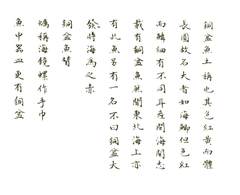 銅盆魚土稱也其色紅黃而體
長圓故名大者如海鯽但色紅
而鱗細有不同耳產閩海閩志
載有銅盆魚無聞東北海上亦
有此魚另有一名不曰銅盆大
時海為之赤
銅盆魚贊
稱海鏡螺作手巾
魚中器皿更有銅盆